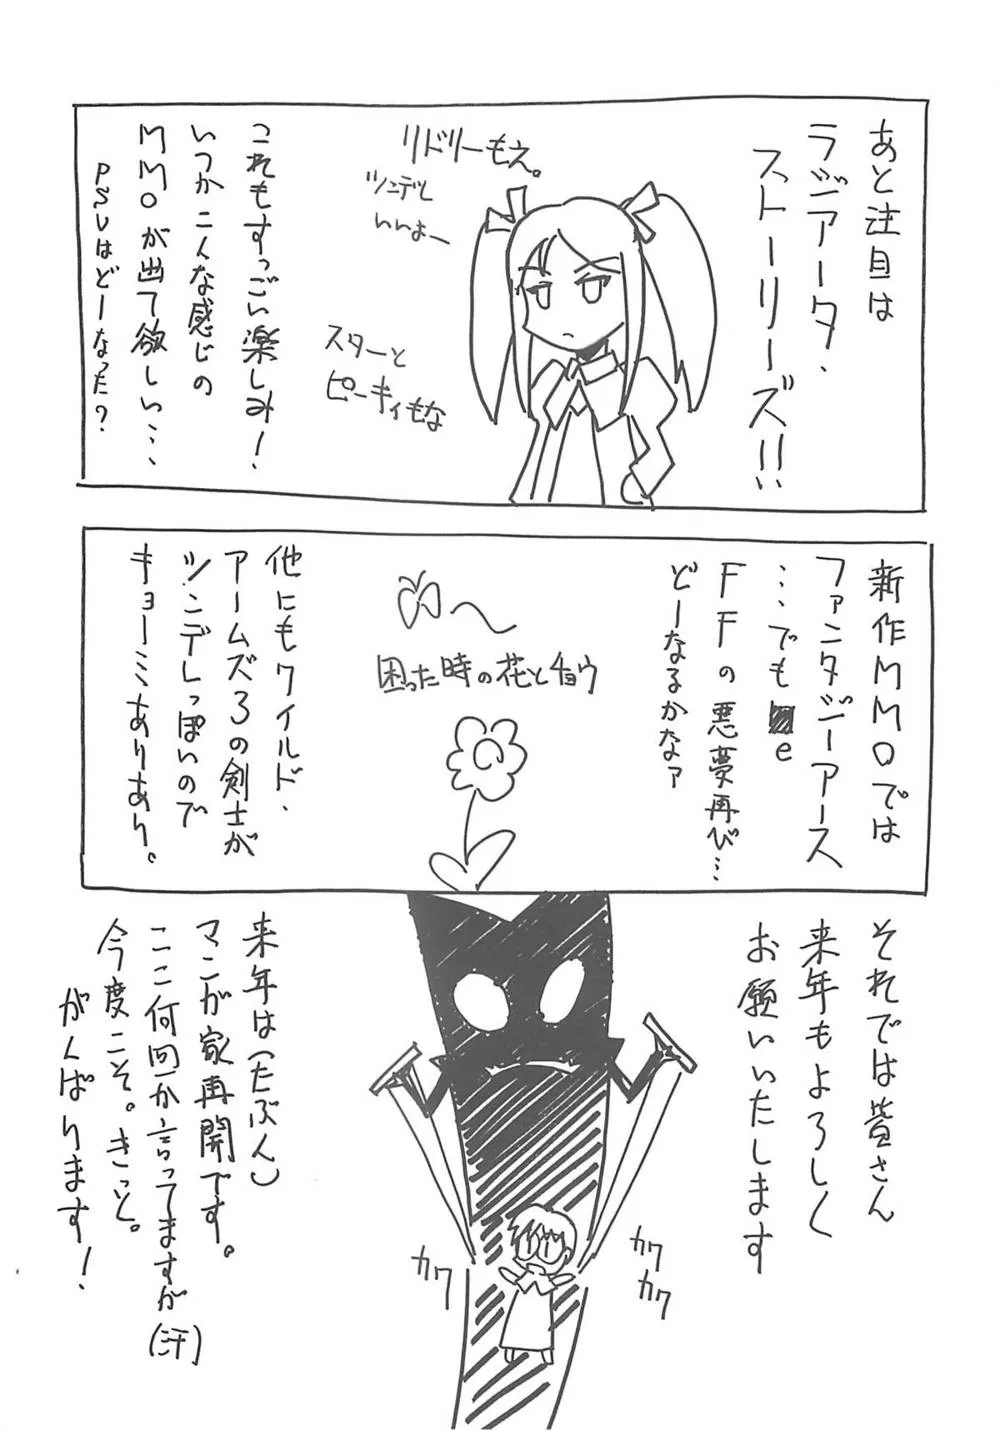 あと注目は
ラジアータ・
ストーリーズ!!
リドリーもえ。
ツンデレ
いいよー
スターと
ピーキィもな
これもすっごい楽しみ！
いつかこんな感じの
MMOが出て欲しい…
PSUはどーなった？
新作MMOでは
ファンタジーアース
…でも
e
FFの悪夢再び…
どーなるかなァ
困った時の花とチョウ
他にもワイルド・
アームズ3の剣士が
ツンデレっぽいので
キョーミありあり。
それでは皆さん
来年もよろしく
お願いいたします
カク
カク
カク
来年は(たぶん)
マンガ家再開です。
ここ何回か言ってますが(汗)
今度こそ。きっと。
がんばります！